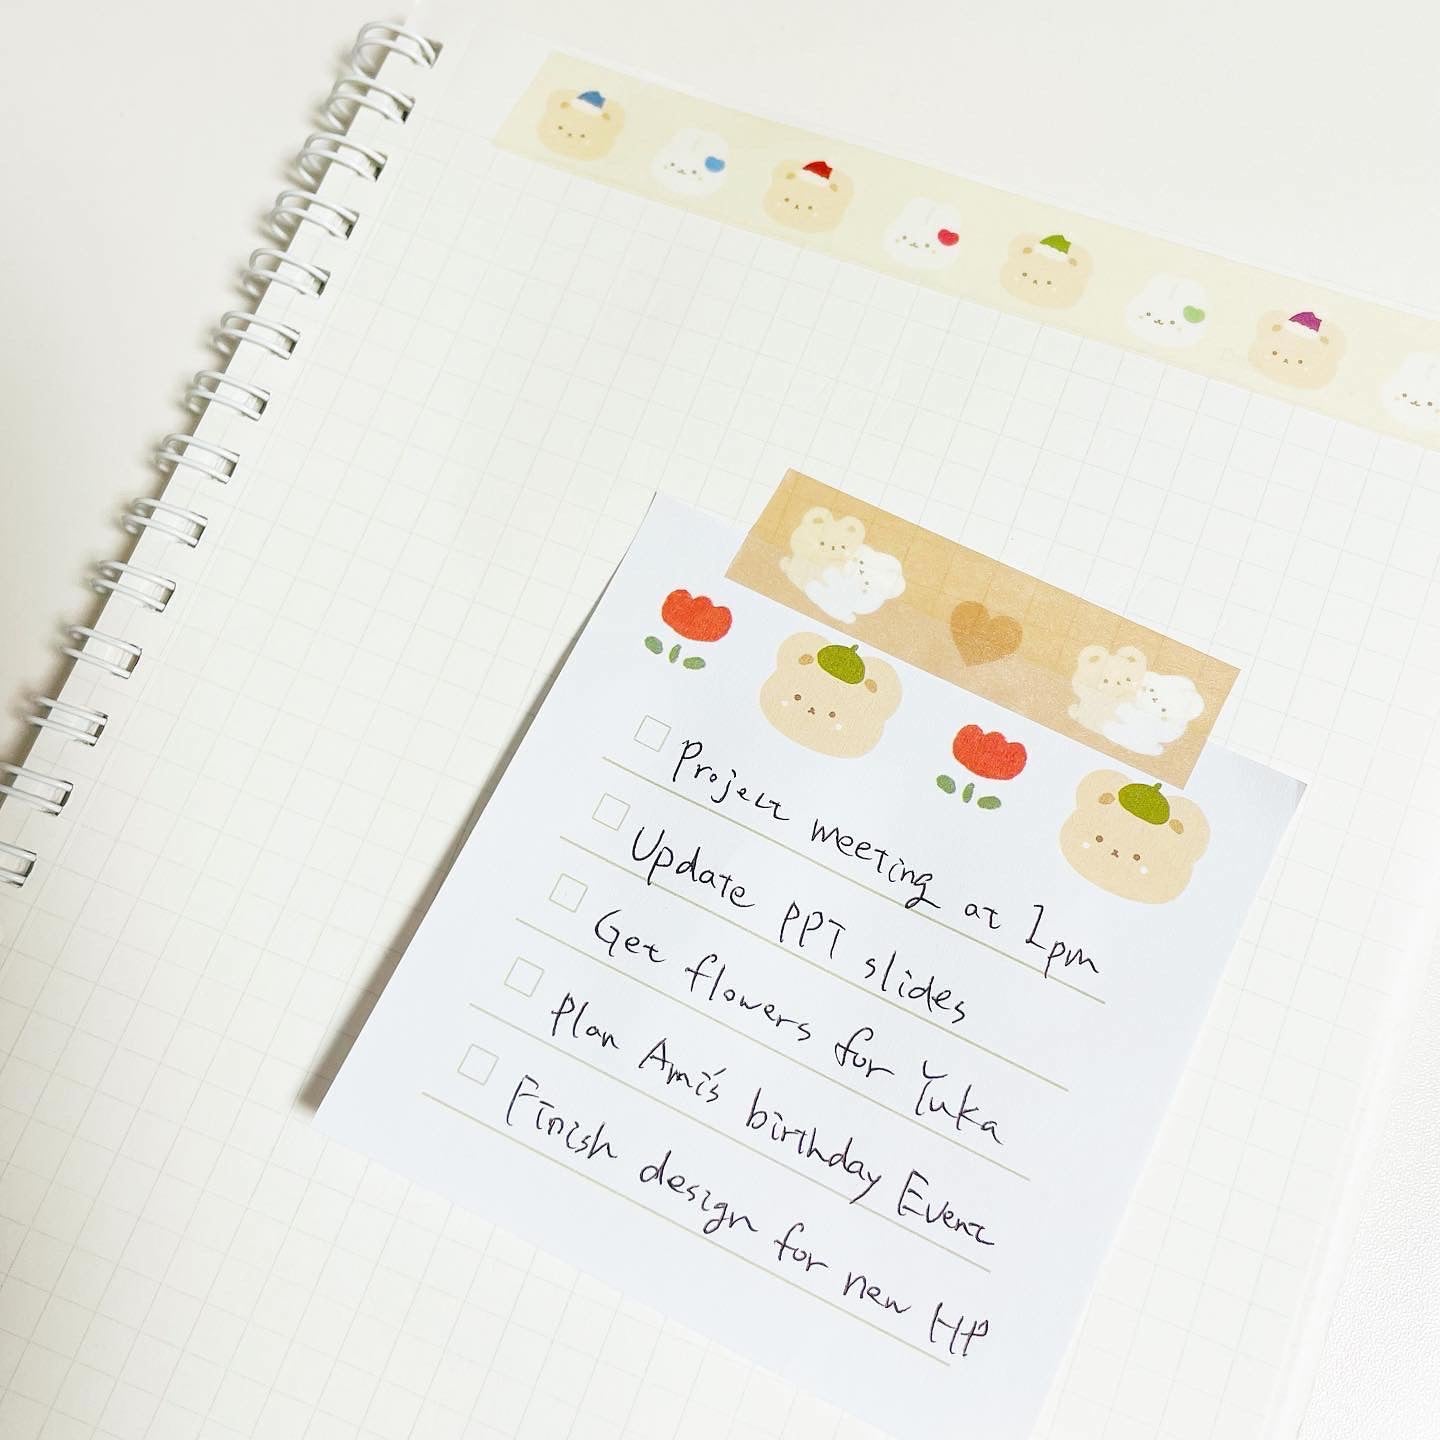 Project meeting at 1pm
Update PPT slides
Get flowers for Yuka
Plan Ami's birthday Event
Finish design for new HP